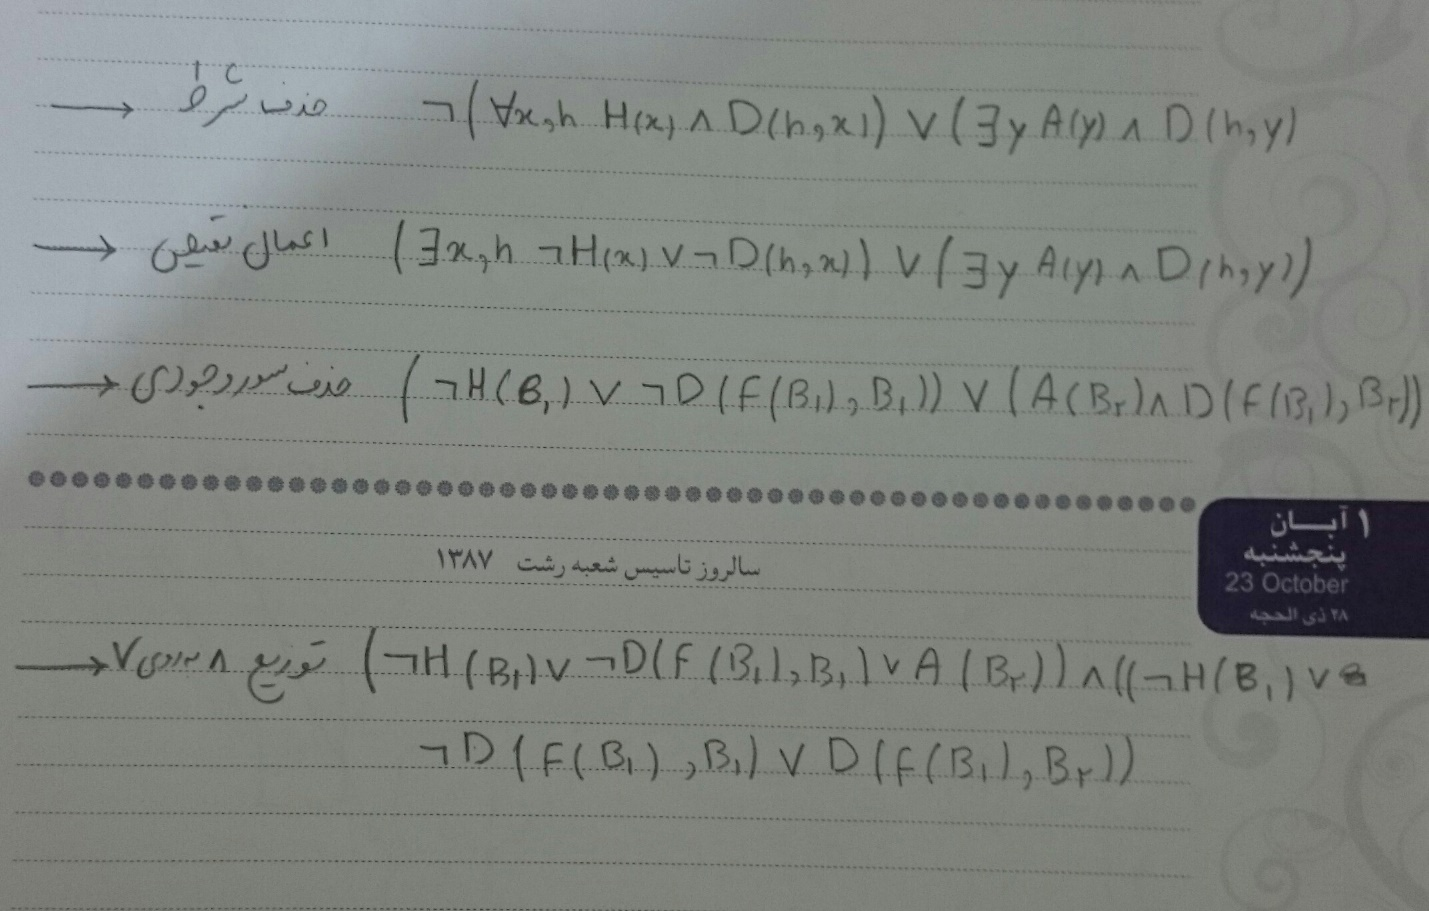 → حذف شرط ¬(∀x,h H(x) ∧ D(h,x)) ∨ (∃y A(y) ∧ D(h,y)
→ اعمال نقیض (∃x,h ¬H(x) ∨ ¬D(h,x)) ∨ (∃y A(y) ∧ D(h,y))
→ حذف سور وجودی (¬H(B₁) ∨ ¬D(F(B₁), B₁)) ∨ (A(B۲) ∧ D(F(B₁), B۲))
۱ آبان
پنجشنبه
23 October
۲۸ ذی الحجه
سالروز تاسیس شعبه رشت ۱۳۸۷
→ توزیع ∧ بر روی ∨ (¬H(B₁) ∨ ¬D(F(B₁), B₁) ∨ A(B۲)) ∧ ((¬H(B₁) ∨
¬D(F(B₁), B₁) ∨ D(F(B₁), B۲))